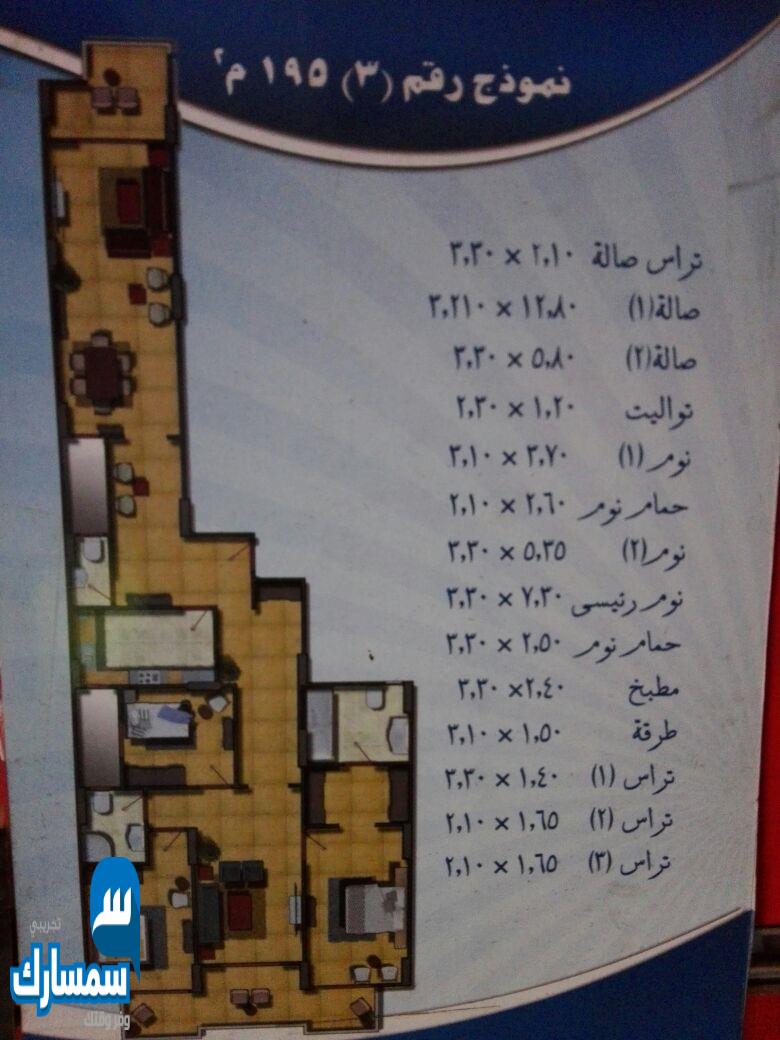 نموذج رقم (٣) ١٩٥ م٢
تراس صالة ٢,١٠ × ٣,٣٠
صالة (١) ١٢,٨٠ × ٣,٢١٠
صالة (٢) ٥,٨٠ × ٣,٣٠
تواليت ١,٢٠ × ٢,٣٠
نوم (١) ٣,٧٠ × ٣,١٠
حمام نوم ٢,٦٠ × ٢,١٠
نوم (٢) ٥,٣٥ × ٣,٣٠
نوم رئيسى ٧,٣٠ × ٣,٣٠
حمام نوم ٢,٥٠ × ٣,٣٠
مطبخ ٢,٤٠ × ٣,٣٠
طرقة ١,٥٠ × ٣,١٠
تراس (١) ١,٤٠ × ٣,٣٠
تراس (٢) ١,٦٥ × ٢,١٠
تراس (٣) ١,٦٥ × ٢,١٠
تجريبي
سمسارك
وفر وقتك